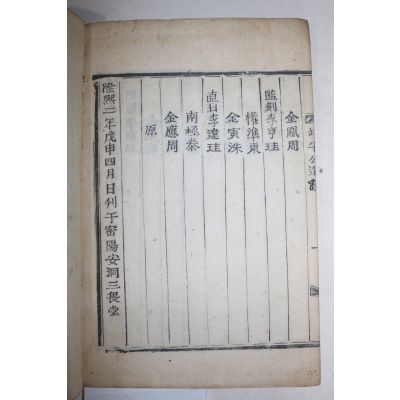 金鳳周
監刻李亨珪
權準東
金寅洙
直日李達珪
南極泰
金應周
原
隆熙二年戊申四月日刊于密陽安洞三畏堂